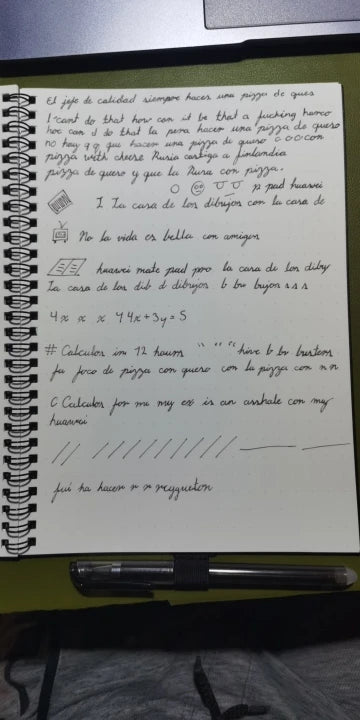 El jefe de calidad siempre haces una pizza de ques
I cant do that how can it be that a fucking
hoe can d do that la pera hacer una pizza de queso
no hay q q que hacem una pizza de queso o o o con
pizza with cheese Rusia castiga a finlandia
pizza de queso y que la Rusa con pizza.
p pad huawei
I La casa de los dibujos con la casa de
No la vida es bella con amigos
huawei mate pad pro la casa de los diby
La casa de los dib d dibujos b bu bujos s s s
4x x x 4 4x+3y=5
# Calculos in 12 hours " " " hive b br
fu foco de pizza con queso con la pizza con n n
C Calculos for mi my ex is an asshale con my
huawei
fui ha hacer r r reggueton